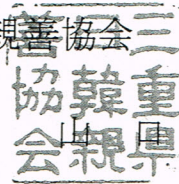 親善協会
山
三重県
日韓親
善協会